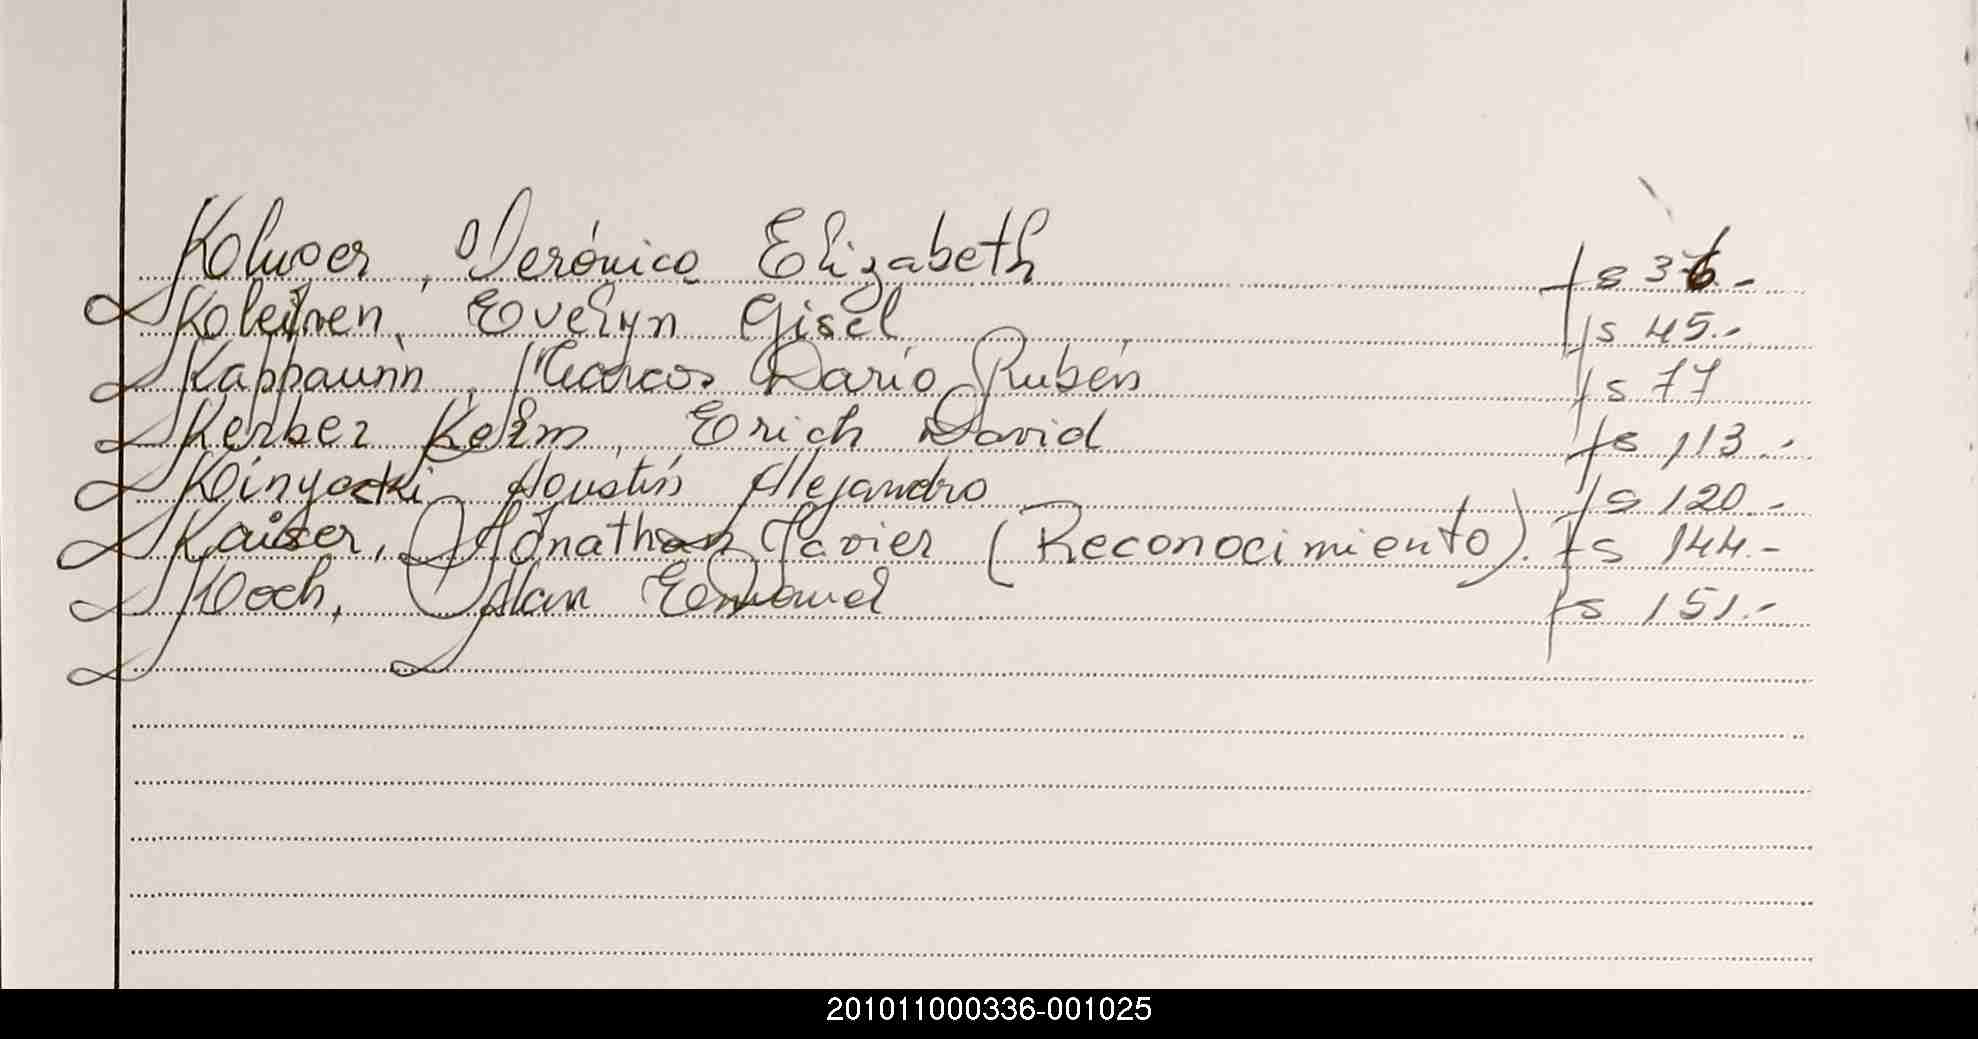 Koluser, Verónica Elizabeth fs 36.-
Koleinen, Evelyn Gisel fs 45.-
Kappaunn, Marcos Darío Rubén fs 77
Kerber Kelm, Erich David fs 113.-
Agustín Alejandro fs 120.-
Kaiser, Jónathan Javier (Reconocimiento). fs 144.-
Koch, Alan Edmund fs 151.-
201011000336-001025